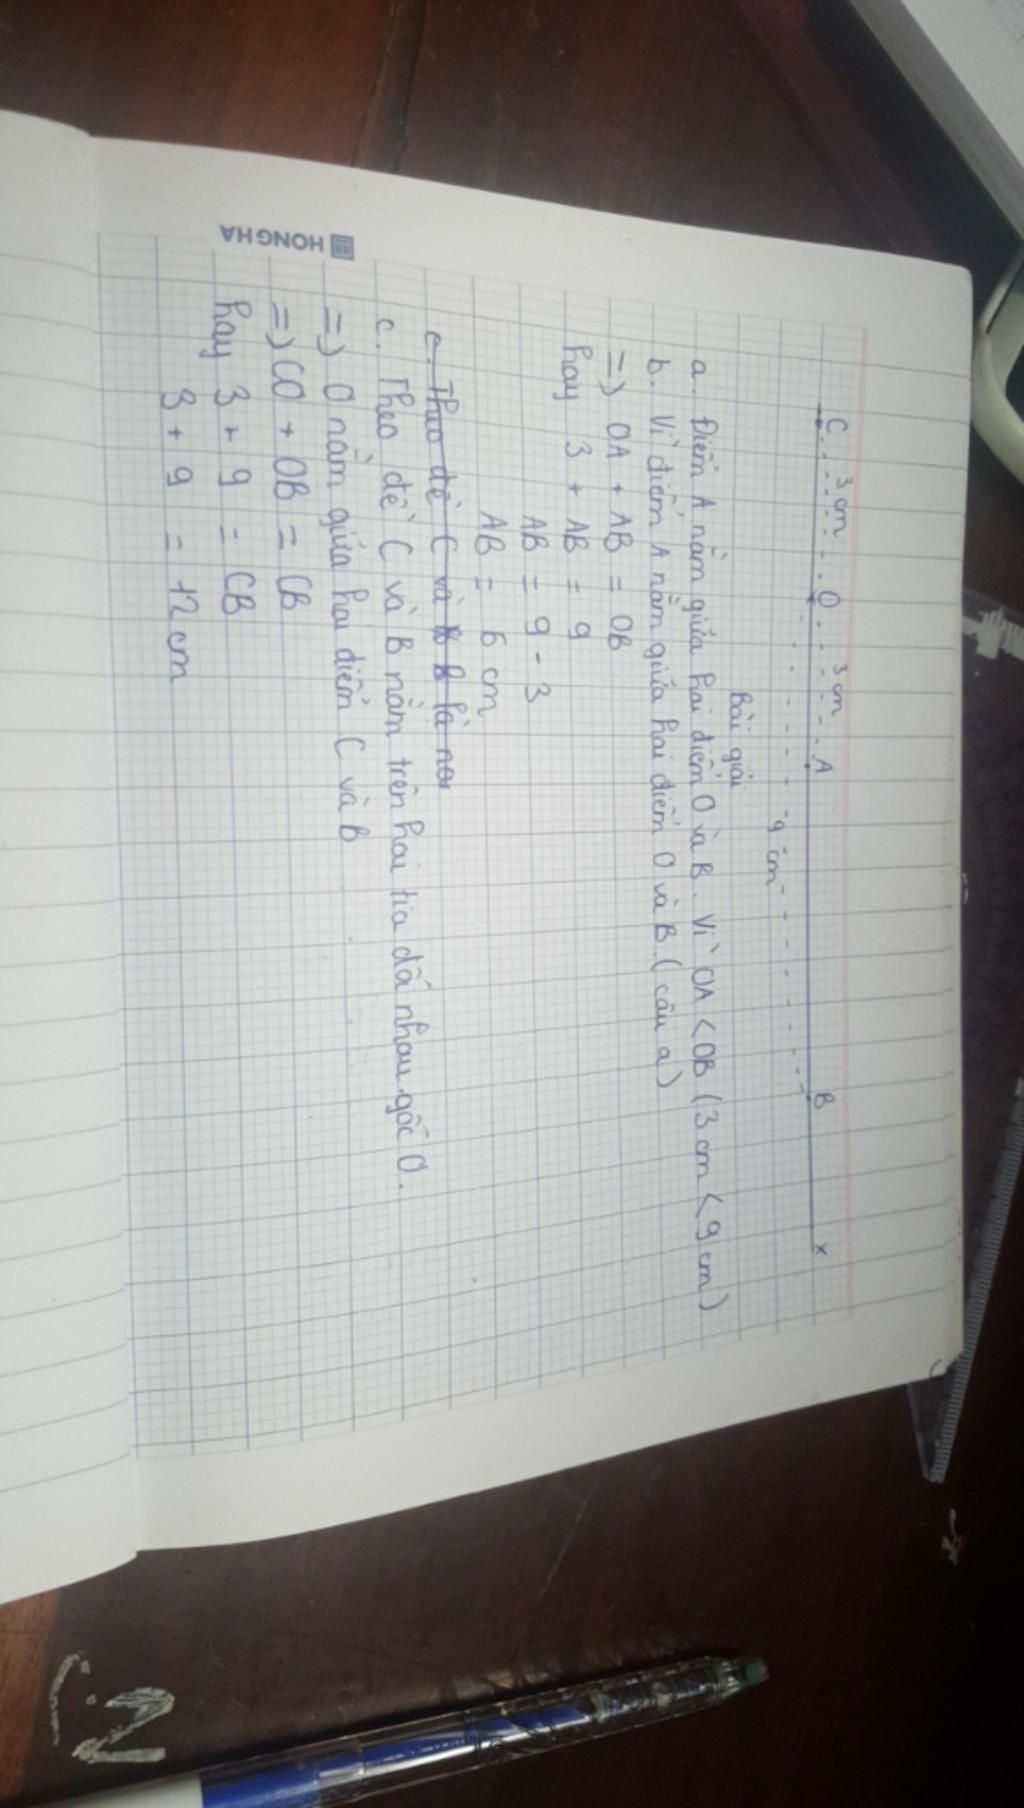 C 3 cm O 3 cm A B x
9 cm
Bài giải
a. Điểm A nằm giữa hai điểm O và B. Vì OA < OB (3 cm < 9 cm)
b. Vì điểm A nằm giữa hai điểm O và B (câu a)
=) OA + AB = OB
hay 3 + AB = 9
AB = 9 - 3
AB = 6 cm
c. Theo đề C và B là
c. Theo đề C và B nằm trên hai tia đấ nhau gốc O.
=) O nằm giữa hai điểm C và B
=) CO + OB = CB
hay 3 + 9 = CB
3 + 9 = 12 cm
HONG HA